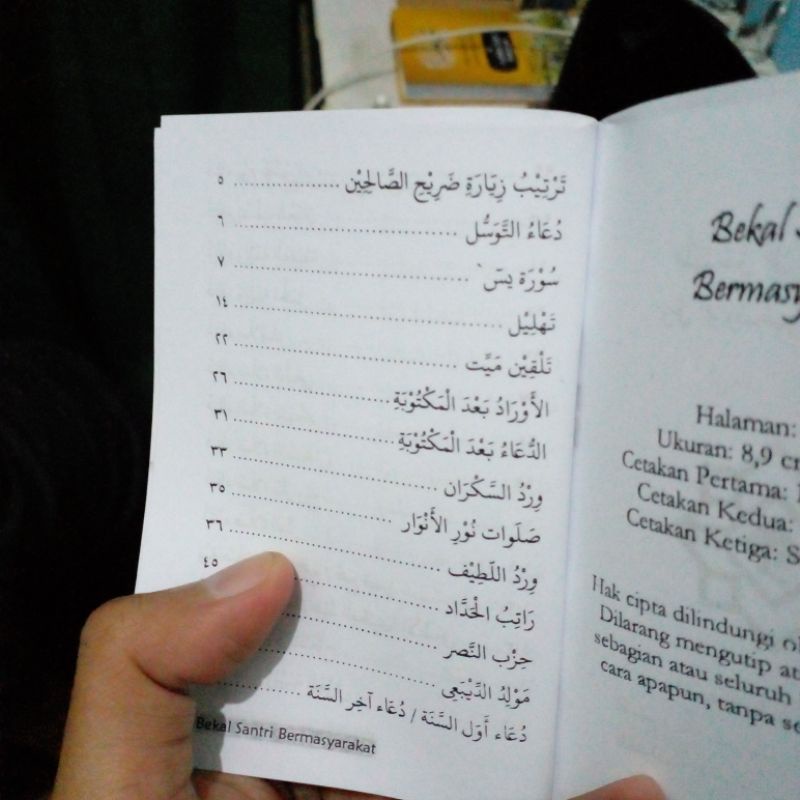 تَرْتِيْبُ زِيَارَةِ ضَرِيْحِ الصَّالِحِيْن .................. ٥
دُعَاءُ التَّوَسُّل .................................... ٦
سُوْرَة يسٓ ` .................................... ٧
تَهْلِيْل .......................................... ١٤
تَلْقِيْن مَيِّت .................................... ٢٢
الأَوْرَادُ بَعْدَ الْمَكْتُوْبَةِ .......................... ٢٦
الدُّعَاءُ بَعْدَ الْمَكْتُوْبَةِ .......................... ٣١
وِرْدُ السَّكْرَان .................................. ٣٣
صَلَوات نُوْرِ الأَنْوَار .......................... ٣٥
وِرْدُ اللَّطِيْف .................................. ٣٦
رَاتِبُ الْحَدَّاد .................................. ٤٥
حِزْب النَّصر ..........................
مَوْلِدُ الدِّيْبَعِى ..........................
دُعَاء أَوَل السَّنَة / دُعَاء آخِر السَّنَة ..............
Bekal Santri Bermasyarakat
Bekal
Halaman:
Ukuran: 8,9
Cetakan Pertama:
Cetakan Kedua:
Cetakan Ketiga:
Hak cipta dilindungi
Dilarang mengutip
sebagian atau seluruh
cara apapun, tanpa